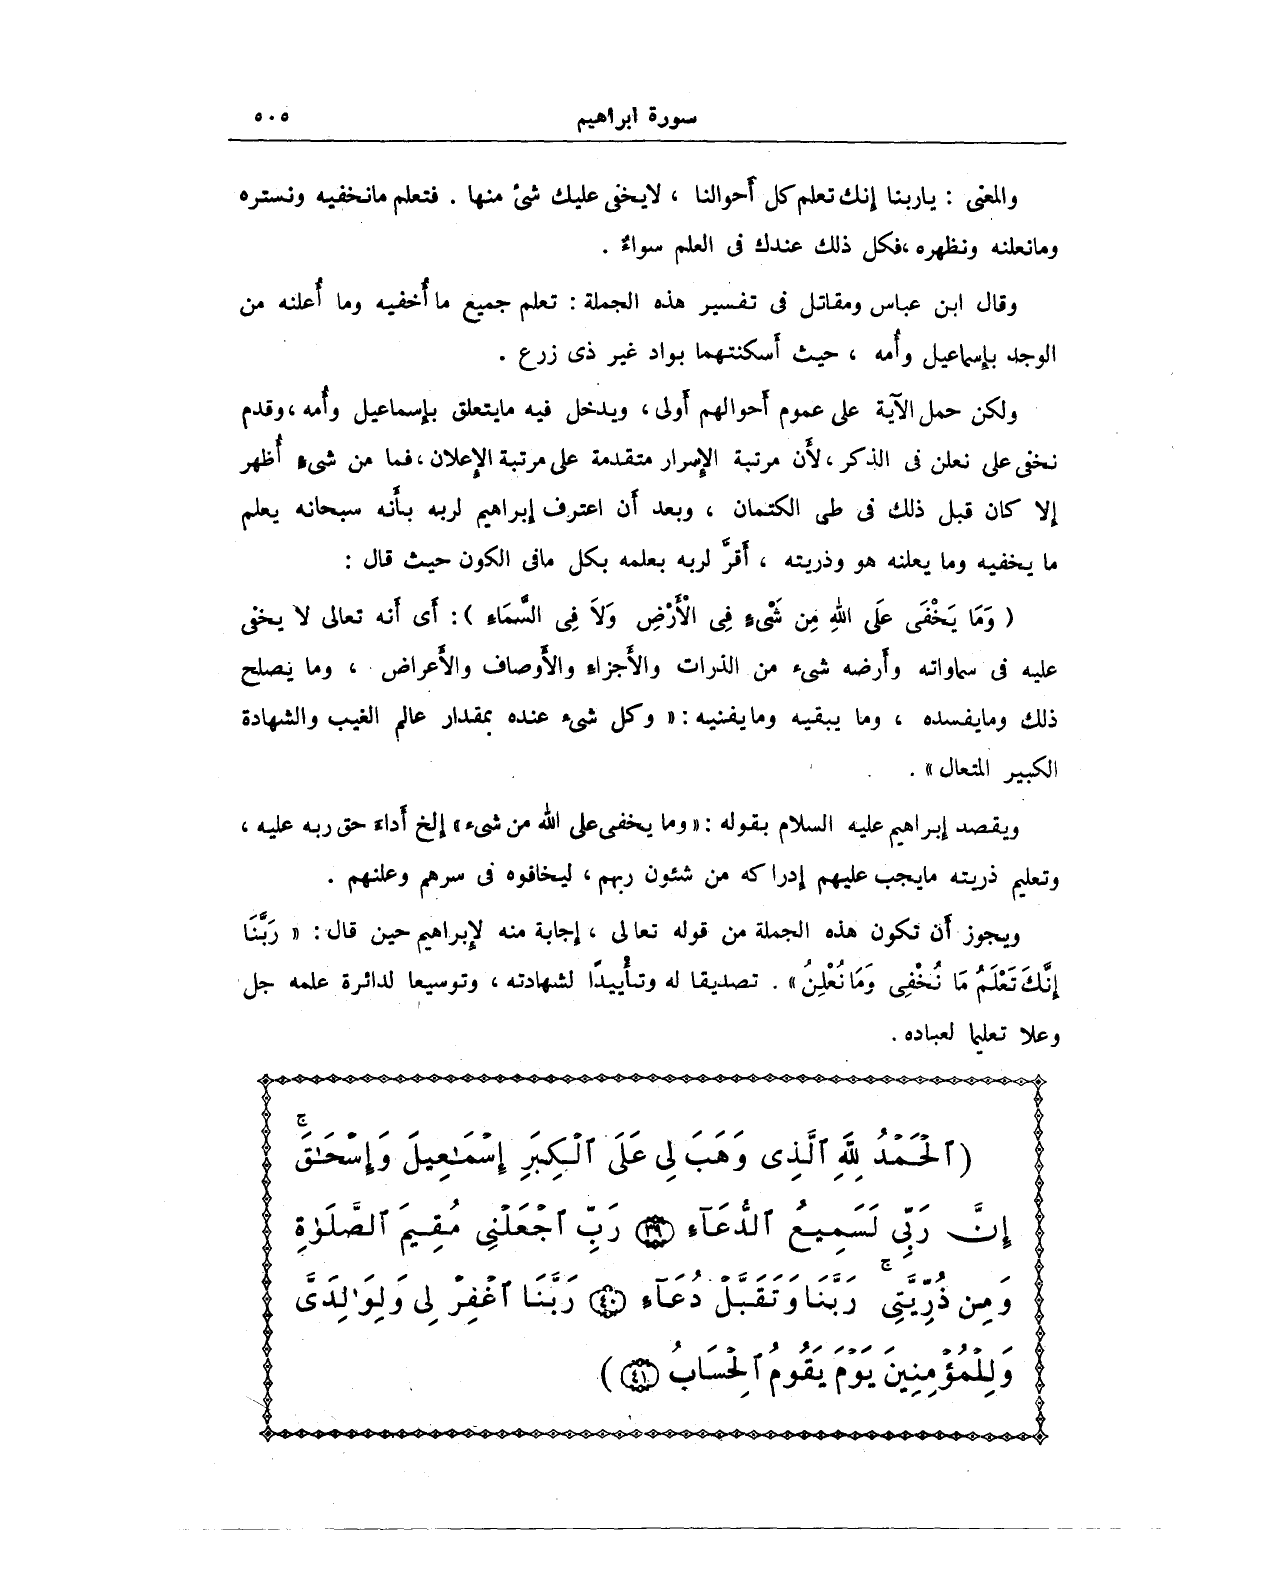 سورة ابراهيم ٥٠٥
والمعنى : ياربنا إنك تعلم كل أحوالنا ، لايخفى عليك شئ منها . فتعلم مانخفيه ونستره
ومانعلنه ونظهره ،فكل ذلك عندك فى العلم سواءٌ .
وقال ابن عباس ومقاتل فى تفسير هذه الجملة : تعلم جميع ما أُخفيه وما أُعلنه من
الوجد بإسماعيل وأُمه ، حيث أسكنتهما بواد غير ذى زرع .
ولكن حمل الآية على عموم أحوالهم أولى ، ويدخل فيه مايتعلق بإسماعيل وأُمه ،وقدم
نخفى على نعلن فى الذكر ،لأن مرتبة الإسرار متقدمة على مرتبة الإعلان ،فما من شىء أُظهر
إلا كان قبل ذلك فى طى الكتمان ، وبعد أن اعترف إبراهيم لربه بأنه سبحانه يعلم
ما يخفيه وما يعلنه هو وذريته ، أقرَّ لربه بعلمه بكل مافى الكون حيث قال :
( وَمَا يَخْفَى عَلَى اللهِ مِن شَىْءٍ فِى الْأَرْضِ وَلاَ فِى السَّمَاءِ ) : أى أنه تعالى لا يخفى
عليه فى سماواته وأرضه شىء من الذرات والأجزاء والأوصاف والأعراض ، وما يصلح
ذلك ومايفسده ، وما يبقيه ومايفنيه : « وكل شىء عنده بمقدار عالم الغيب والشهادة
الكبير المتعال » .
ويقصد إبراهيم عليه السلام بقوله : « وما يخفى على الله من شىء » إلخ أداءَ حق ربه عليه ،
وتعليم ذريته مايجب عليهم إدراكه من شئون ربهم ، ليخافوه فى سرهم وعلنهم .
ويجوز أن تكون هذه الجملة من قوله تعالى ، إجابة منه لإبراهيم حين قال : « رَبَّنَا
إِنَّكَ تَعْلَمُ مَا نُخْفِى وَمَا نُعْلِنُ » . تصديقا له وتأييدًا لشهادته ، وتوسيعا لدائرة علمه جل
وعلا تعليما لعباده .
( ٱلْحَمْدُ لِلَّهِ ٱلَّذِى وَهَبَ لِى عَلَى ٱلْكِبَرِ إِسْمَٰعِيلَ وَإِسْحَٰقَ ۚ
إِنَّ رَبِّى لَسَمِيعُ ٱلدُّعَآءِ ٣٩ رَبِّ ٱجْعَلْنِى مُقِيمَ ٱلصَّلَوٰةِ
وَمِن ذُرِّيَّتِى ۚ رَبَّنَا وَتَقَبَّلْ دُعَآءِ ٤٠ رَبَّنَا ٱغْفِرْ لِى وَلِوَٰلِدَىَّ
وَلِلْمُؤْمِنِينَ يَوْمَ يَقُومُ ٱلْحِسَابُ ٤١ )